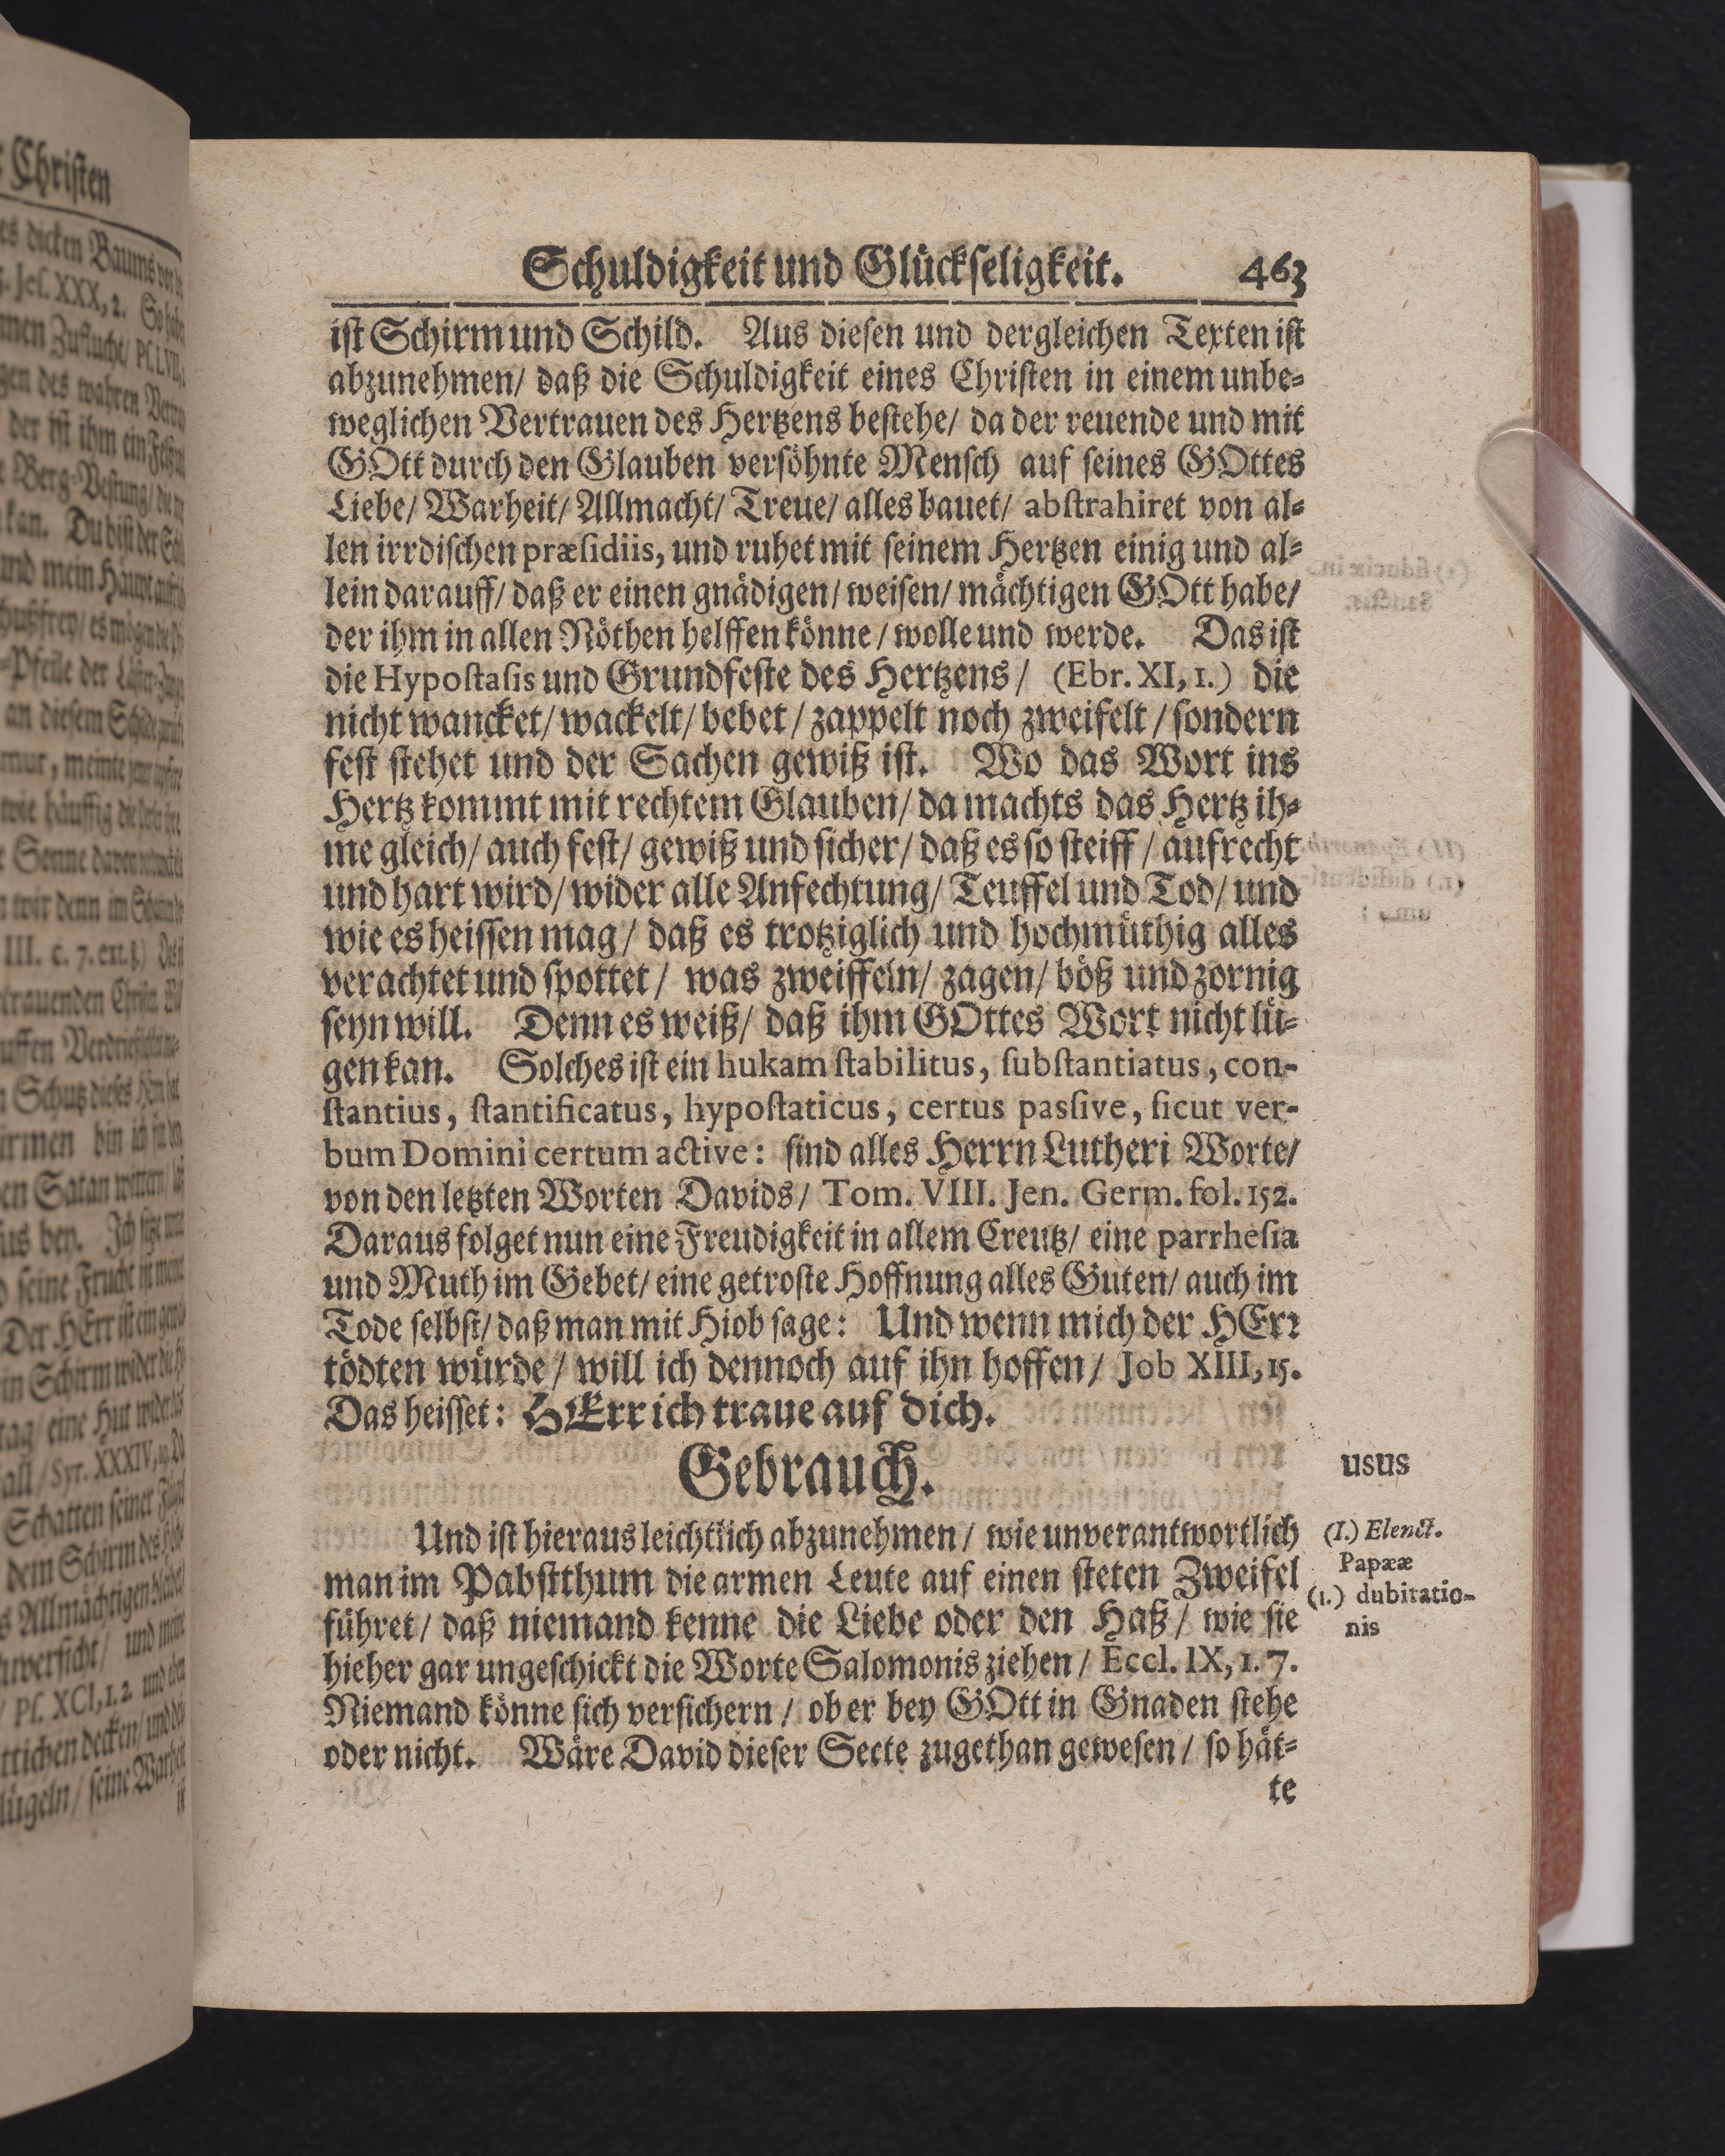 Schuldigkeit und Glückseligkeit. 463
ist Schirm und Schild. Aus diesen und dergleichen Texten ist
abzunehmen/ daß die Schuldigkeit eines Christen in einem unbe-
weglichen Vertrauen des Hertzens bestehe/ da der reuende und mit
GOtt durch den Glauben versöhnte Mensch auf seines GOttes
Liebe/ Warheit/ Allmacht/ Treue/ alles bauet/ abstrahiret von al-
len irrdischen præsidiis, und ruhet mit seinem Hertzen einig und al-
lein darauff/ daß er einen gnädigen/ weisen/ mächtigen GOtt habe/
der ihm in allen Nöthen helffen könne/ wolle und werde. Das ist
die Hypostasis und Grundfeste des Hertzens/ (Ebr. XI, 1.) die
nicht wancket/ wackelt/ bebet/ zappelt noch zweifelt/ sondern
fest stehet und der Sachen gewiß ist. Wo das Wort ins
Hertz kommt mit rechtem Glauben/ da machts das Hertz ih-
me gleich/ auch fest/ gewiß und sicher/ daß es so steiff/ aufrecht
und hart wird/ wider alle Anfechtung/ Teuffel und Tod/ und
wie es heissen mag/ daß es trotziglich und hochmüthig alles
verachtet und spottet/ was zweiffeln/ zagen/ böß und zornig
seyn will. Denn es weiß/ daß ihm GOttes Wort nicht lü-
gen kan. Solches ist ein hukam stabilitus, substantiatus, con-
stantius, stantificatus, hypostaticus, certus passive, sicut ver-
bum Domini certum active: sind alles Herrn Lutheri Worte/
von den letzten Worten Davids/ Tom. VIII. Jen. Germ. fol. 152.
Daraus folget nun eine Freudigkeit in allem Creutz/ eine parrhesia
und Muth im Gebet/ eine getroste Hoffnung alles Guten/ auch im
Tode selbst/ daß man mit Hiob sage: Und wenn mich der HErr
tödten würde/ will ich dennoch auf ihn hoffen/ Job XIII, 15.
Das heisset: HErr ich traue auf dich.
Gebrauch.
usus
Und ist hieraus leichtlich abzunehmen/ wie unverantwortlich
(I.) Elenct.
Papææ
man im Pabstthum die armen Leute auf einen steten Zweifel
(1.) dubitatio-
nis
führet/ daß niemand kenne die Liebe oder den Haß/ wie sie
hieher gar ungeschickt die Worte Salomonis ziehen/ Eccl. IX, 1. 7.
Niemand könne sich versichern/ ob er bey GOtt in Gnaden stehe
oder nicht. Wäre David dieser Secte zugethan gewesen/ so hät-
te